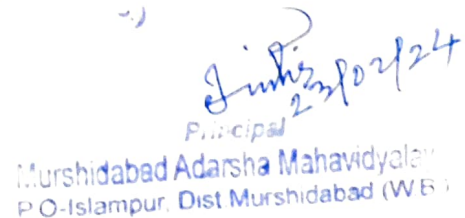 23/02/24
Principal
Murshidabad Adarsha Mahavidyalay
P.O-Islampur, Dist.Murshidabad (W.B.)